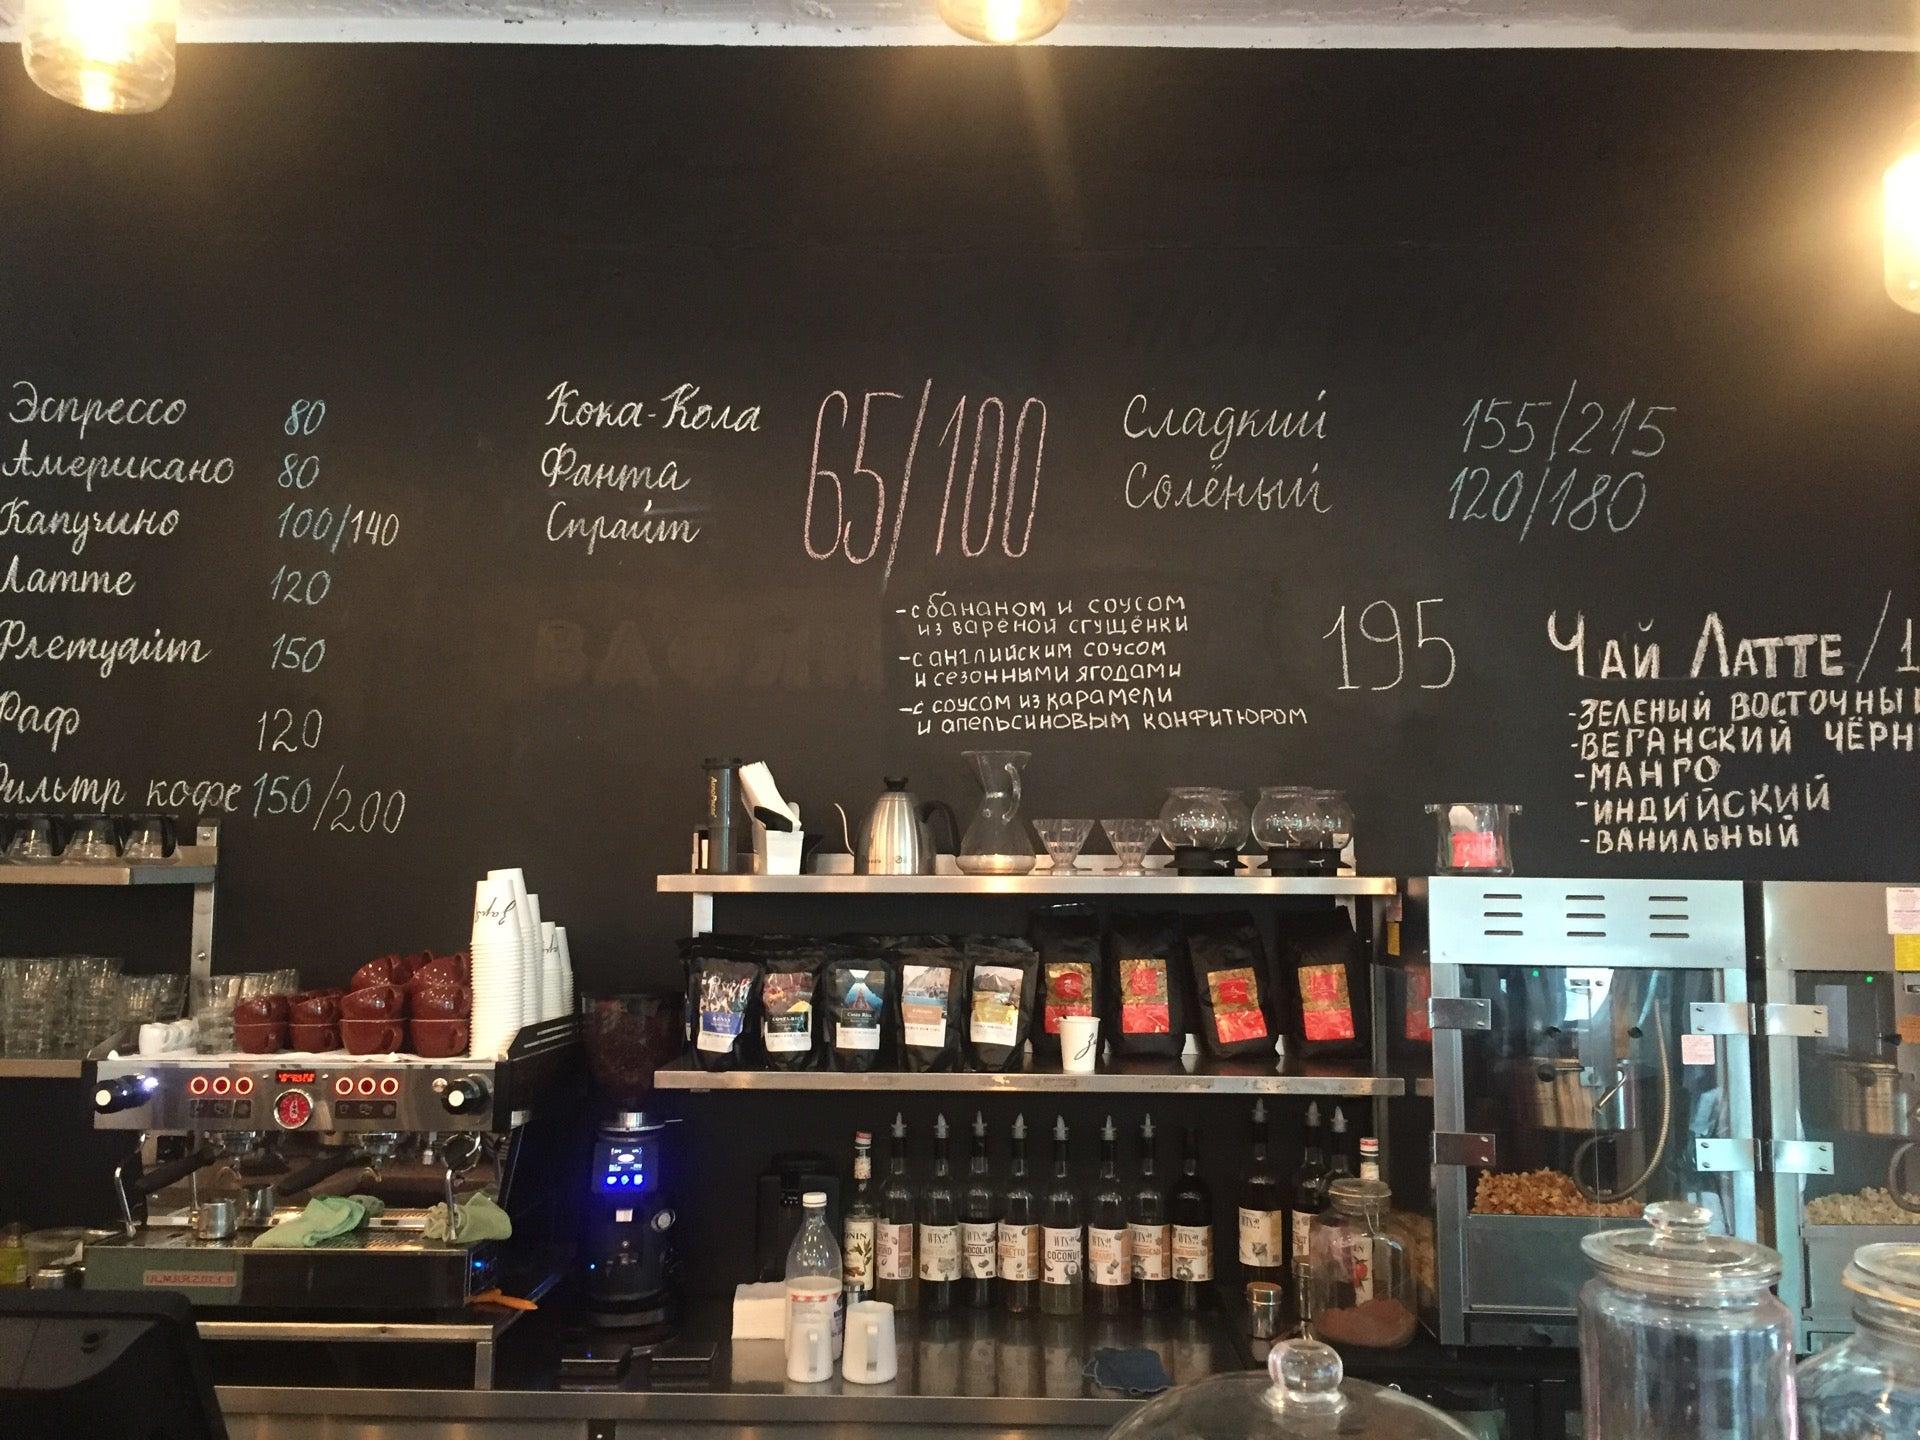 Эспрессо 80
Американо 80
Капучино 100/140
Латте 120
Флетуайт 150
Раф 120
Фильтр кофе 150/200
Кока-Кола
Фанта
Спрайт
65/100
Сладкий 155/215
Солёный 120/180
ВАФЛИ
-с бананом и соусом
из варёной сгущёнки
-с английским соусом
и сезонными ягодами
-с соусом из карамели
и апельсиновым конфитюром
195
Чай Латте/1
-ЗЕЛЕНЫЙ ВОСТОЧНЫЙ
-ВЕГАНСКИЙ ЧЁРН
-МАНГО
-ИНДИЙСКИЙ
-ВАНИЛЬНЫЙ
AeroPress
KENYA
COSTA RICA
Costa Rica
Ethiopia
WTS
COCONUT